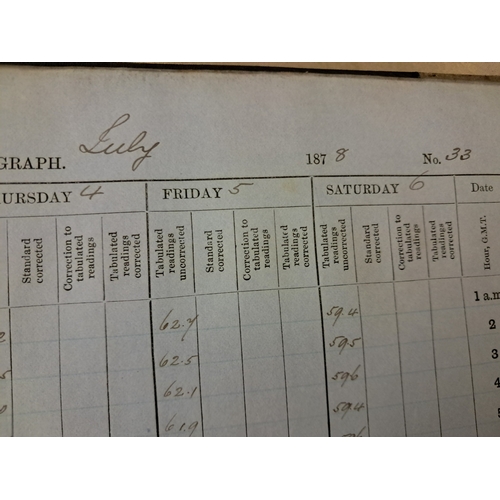 GRAPH. July 1878 No. 33
THURSDAY 4 FRIDAY 5 SATURDAY 6 Date
Standard corrected Correction to tabulated readings Tabulated readings corrected Tabulated readings uncorrected Standard corrected Correction to tabulated readings Tabulated readings corrected Tabulated readings uncorrected Standard corrected Correction to tabulated readings Tabulated readings corrected Hour, G.M.T.
62.7 59.4 1 a.m
62.5 59.5 2
62.1 59.6 3
61.9 59.4 4